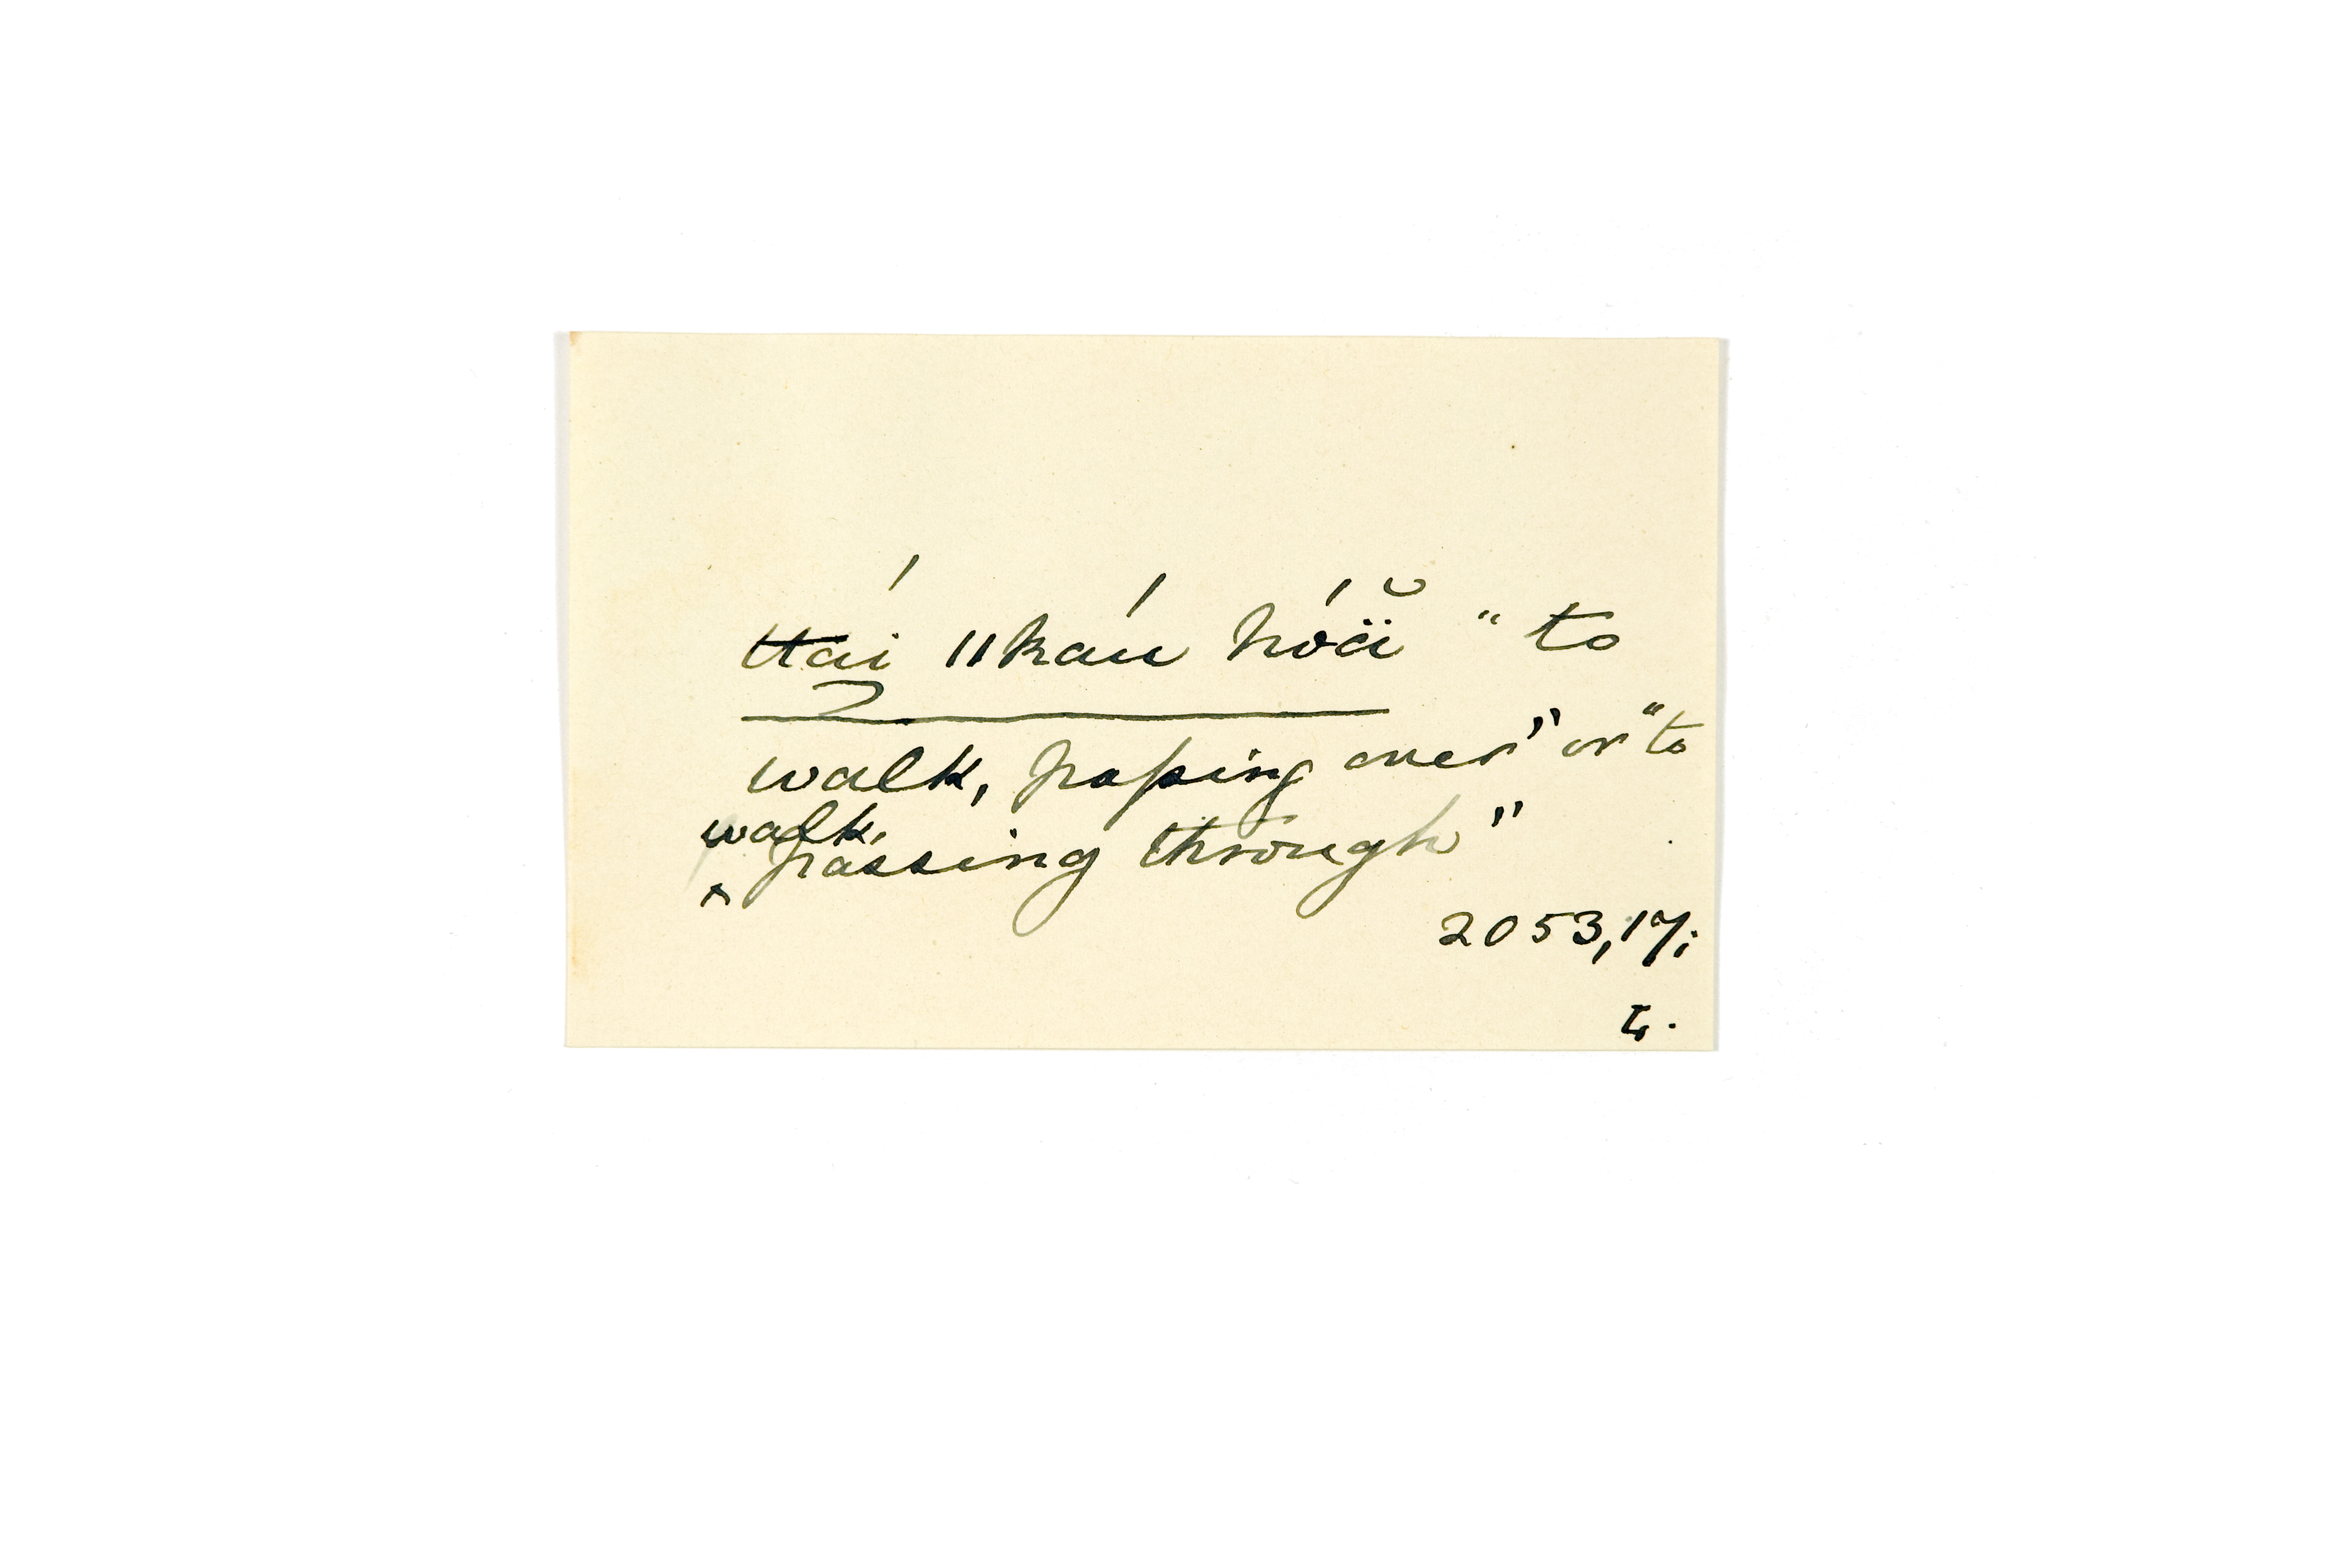 ttai ǁkáu hóä̆ "to
walk, passing over" or "to
walk,
passing through"
2053, 17;
L.